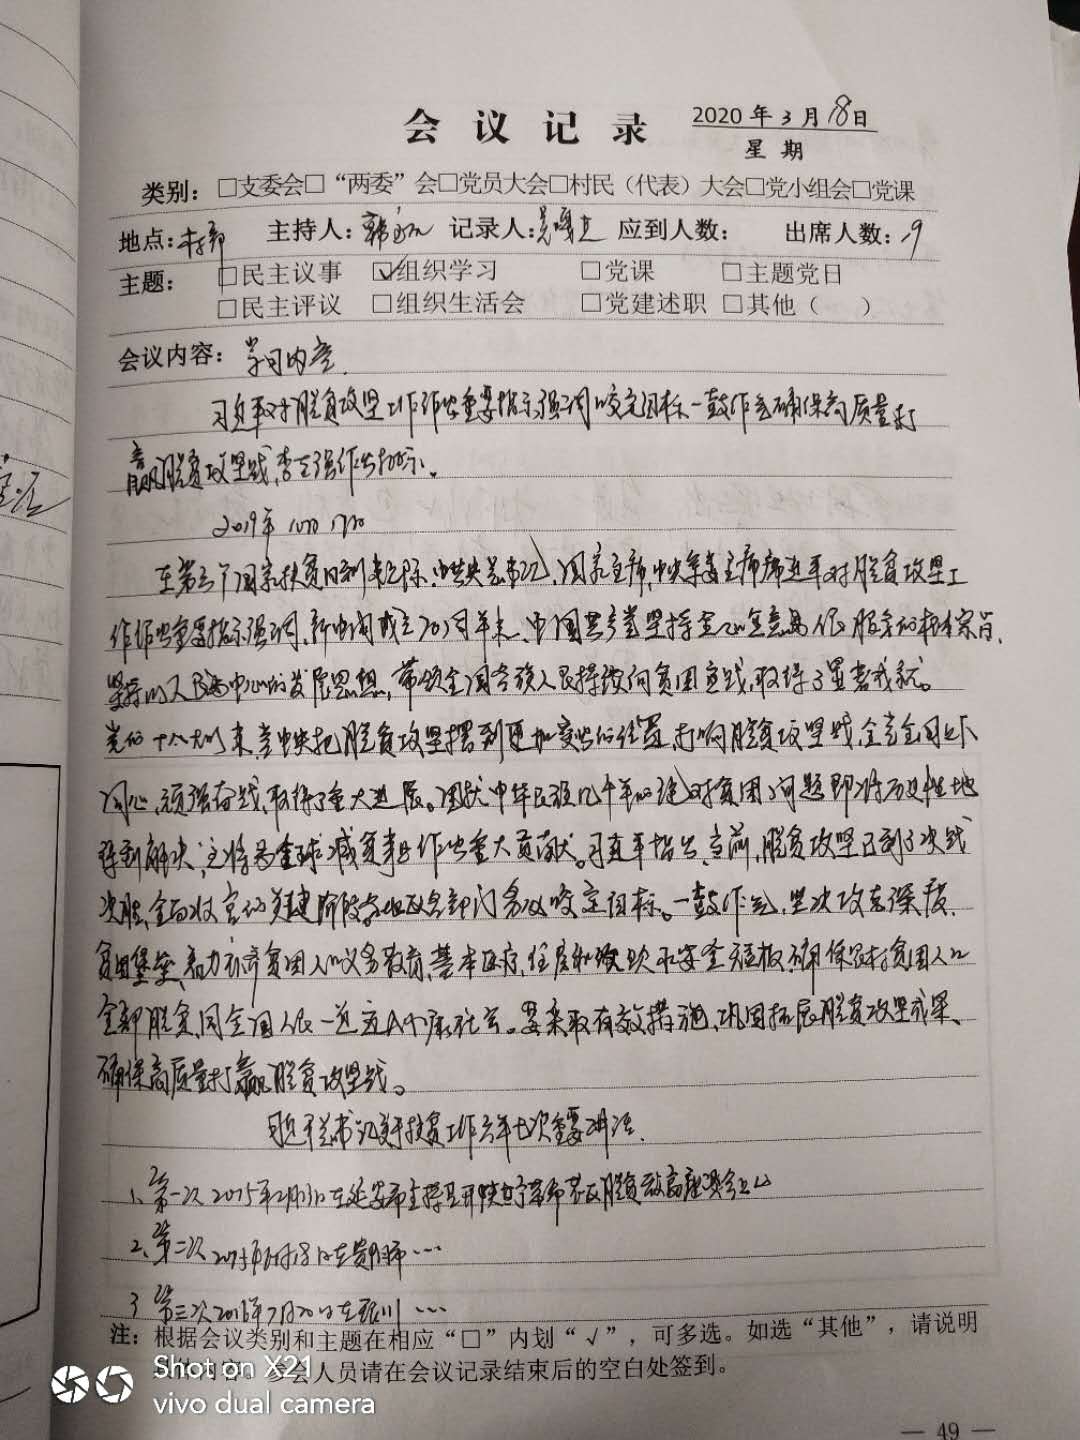 会议记录
2020年3月18日
星期
类别：□支委会□“两委”会□党员大会□村民（代表）大会□党小组会□党课
地点：村部 主持人：韩 记录人： 应到人数： 出席人数：19
主题： □民主议事 ☑组织学习 □党课 □主题党日
□民主评议 □组织生活会 □党建述职 □其他（ ）
会议内容：学习内容
习近平对脱贫攻坚工作作出重要指示强调咬定目标一鼓作气确保高质量打
赢脱贫攻坚战，李克强作出批示。
2019年10月17日
在第六个国家扶贫日到来之际，中共中央总书记，国家主席，中央军委主席习近平对脱贫攻坚工
作作出重要指示强调，新中国成立70周年来，中国共产党坚持全心全意为人民服务的根本宗旨，
坚持以人民为中心的发展思想，带领全国各族人民持续向贫困宣战，取得了显著成就。
党的十八大以来，党中央把脱贫攻坚摆到更加突出的位置，打响脱贫攻坚战，全党全国上下
同心，顽强奋战，取得了重大进展。困扰中华民族几千年的绝对贫困问题即将历史性地
得到解决，这将为全球减贫事业作出重大贡献。习近平指出，当前，脱贫攻坚已到了决战
决胜、全面收官的关键阶段各地区各部门务必咬定目标。一鼓作气，坚决攻克深度
贫困堡垒，着力补齐贫困人口义务教育、基本医疗、住房和饮水安全短板，确保农村贫困人口
全部脱贫，同全国人民一道迈入小康社会。要采取有效措施，巩固拓展脱贫攻坚成果，
确保高质量打赢脱贫攻坚战。
习近平总书记关于扶贫工作六年七次重要讲话
1、第一次2015年2月13日在延安市主持召开陕甘宁革命老区脱贫致富座谈会上
2、第二次2015年6月18日在贵州 …
3 第三次2016年7月20日在银川 …
注：根据会议类别和主题在相应“□”内划“√”，可多选。如选“其他”，请说明
内容。参会人员请在会议记录结束后的空白处签到。
Shot on X21
vivo dual camera
— 49 —